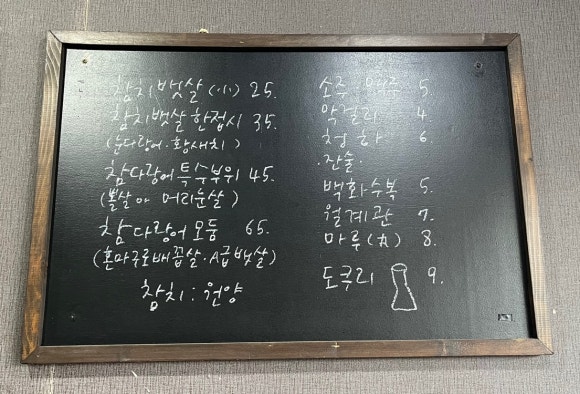 참치뱃살 (小) 25.
참치뱃살 한접시 35.
(눈다랑어·황새치)
참다랑어 특수부위 45.
(뽈살 and 머리눈살)
참다랑어 모둠 65.
(혼마구로배꼽살·A급뱃살)
참치 : 원양
소주 맥주 5.
막걸리 4.
청하 6
·잔술·
백화수복 5.
월계관 7.
마루(丸) 8.
도쿠리 9.